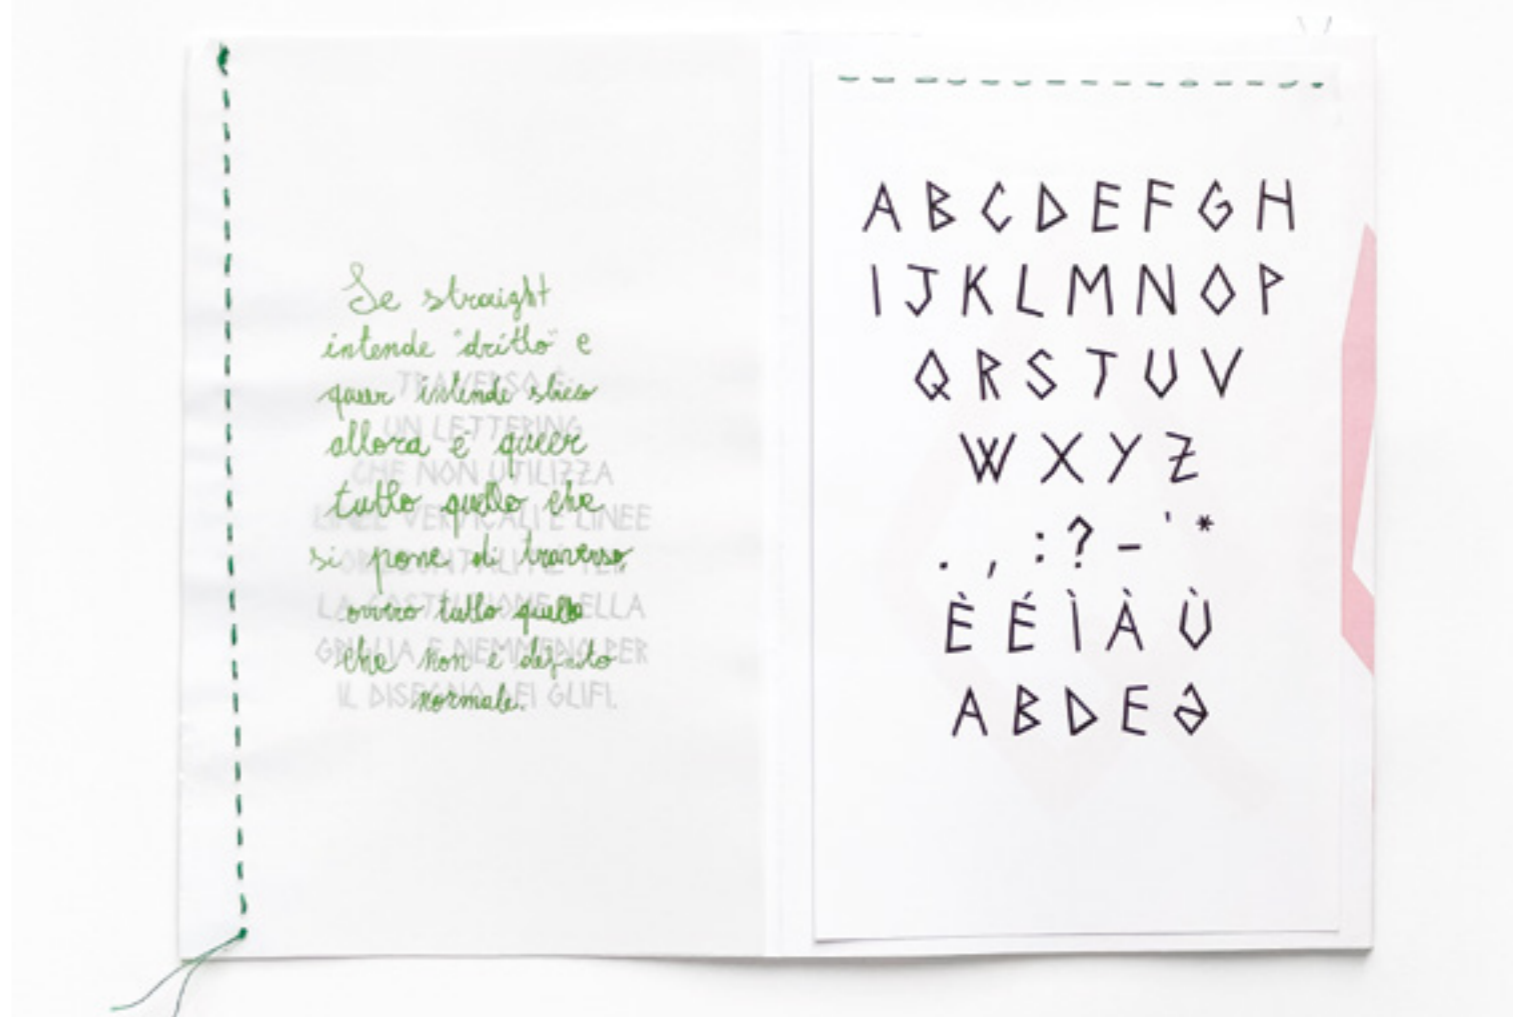 Se straight
intende "dritto" e
queer intende sbieco
allora è queer
tutto quello che
si pone di traverso,
ovvero tutto quello
che non è definito
normale.
TRAVERSO È
UN LETTERING
CHE NON UTILIZZA
LINEE VERTICALI E LINEE
ORIZZONTALI NÉ PER
LA COSTRUZIONE DELLA
GRIGLIA E NEMMENO PER
IL DISEGNO DEI GLIFI.
A B C D E F G H
I J K L M N O P
Q R S T U V
W X Y Z
. , : ? - ' *
È É Ì À Ù
A B D E Ə